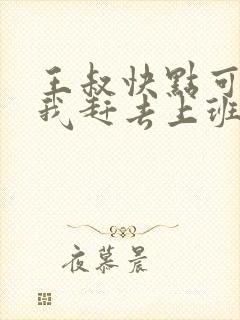 王叔快點可
我赶去上班
夜慕晨